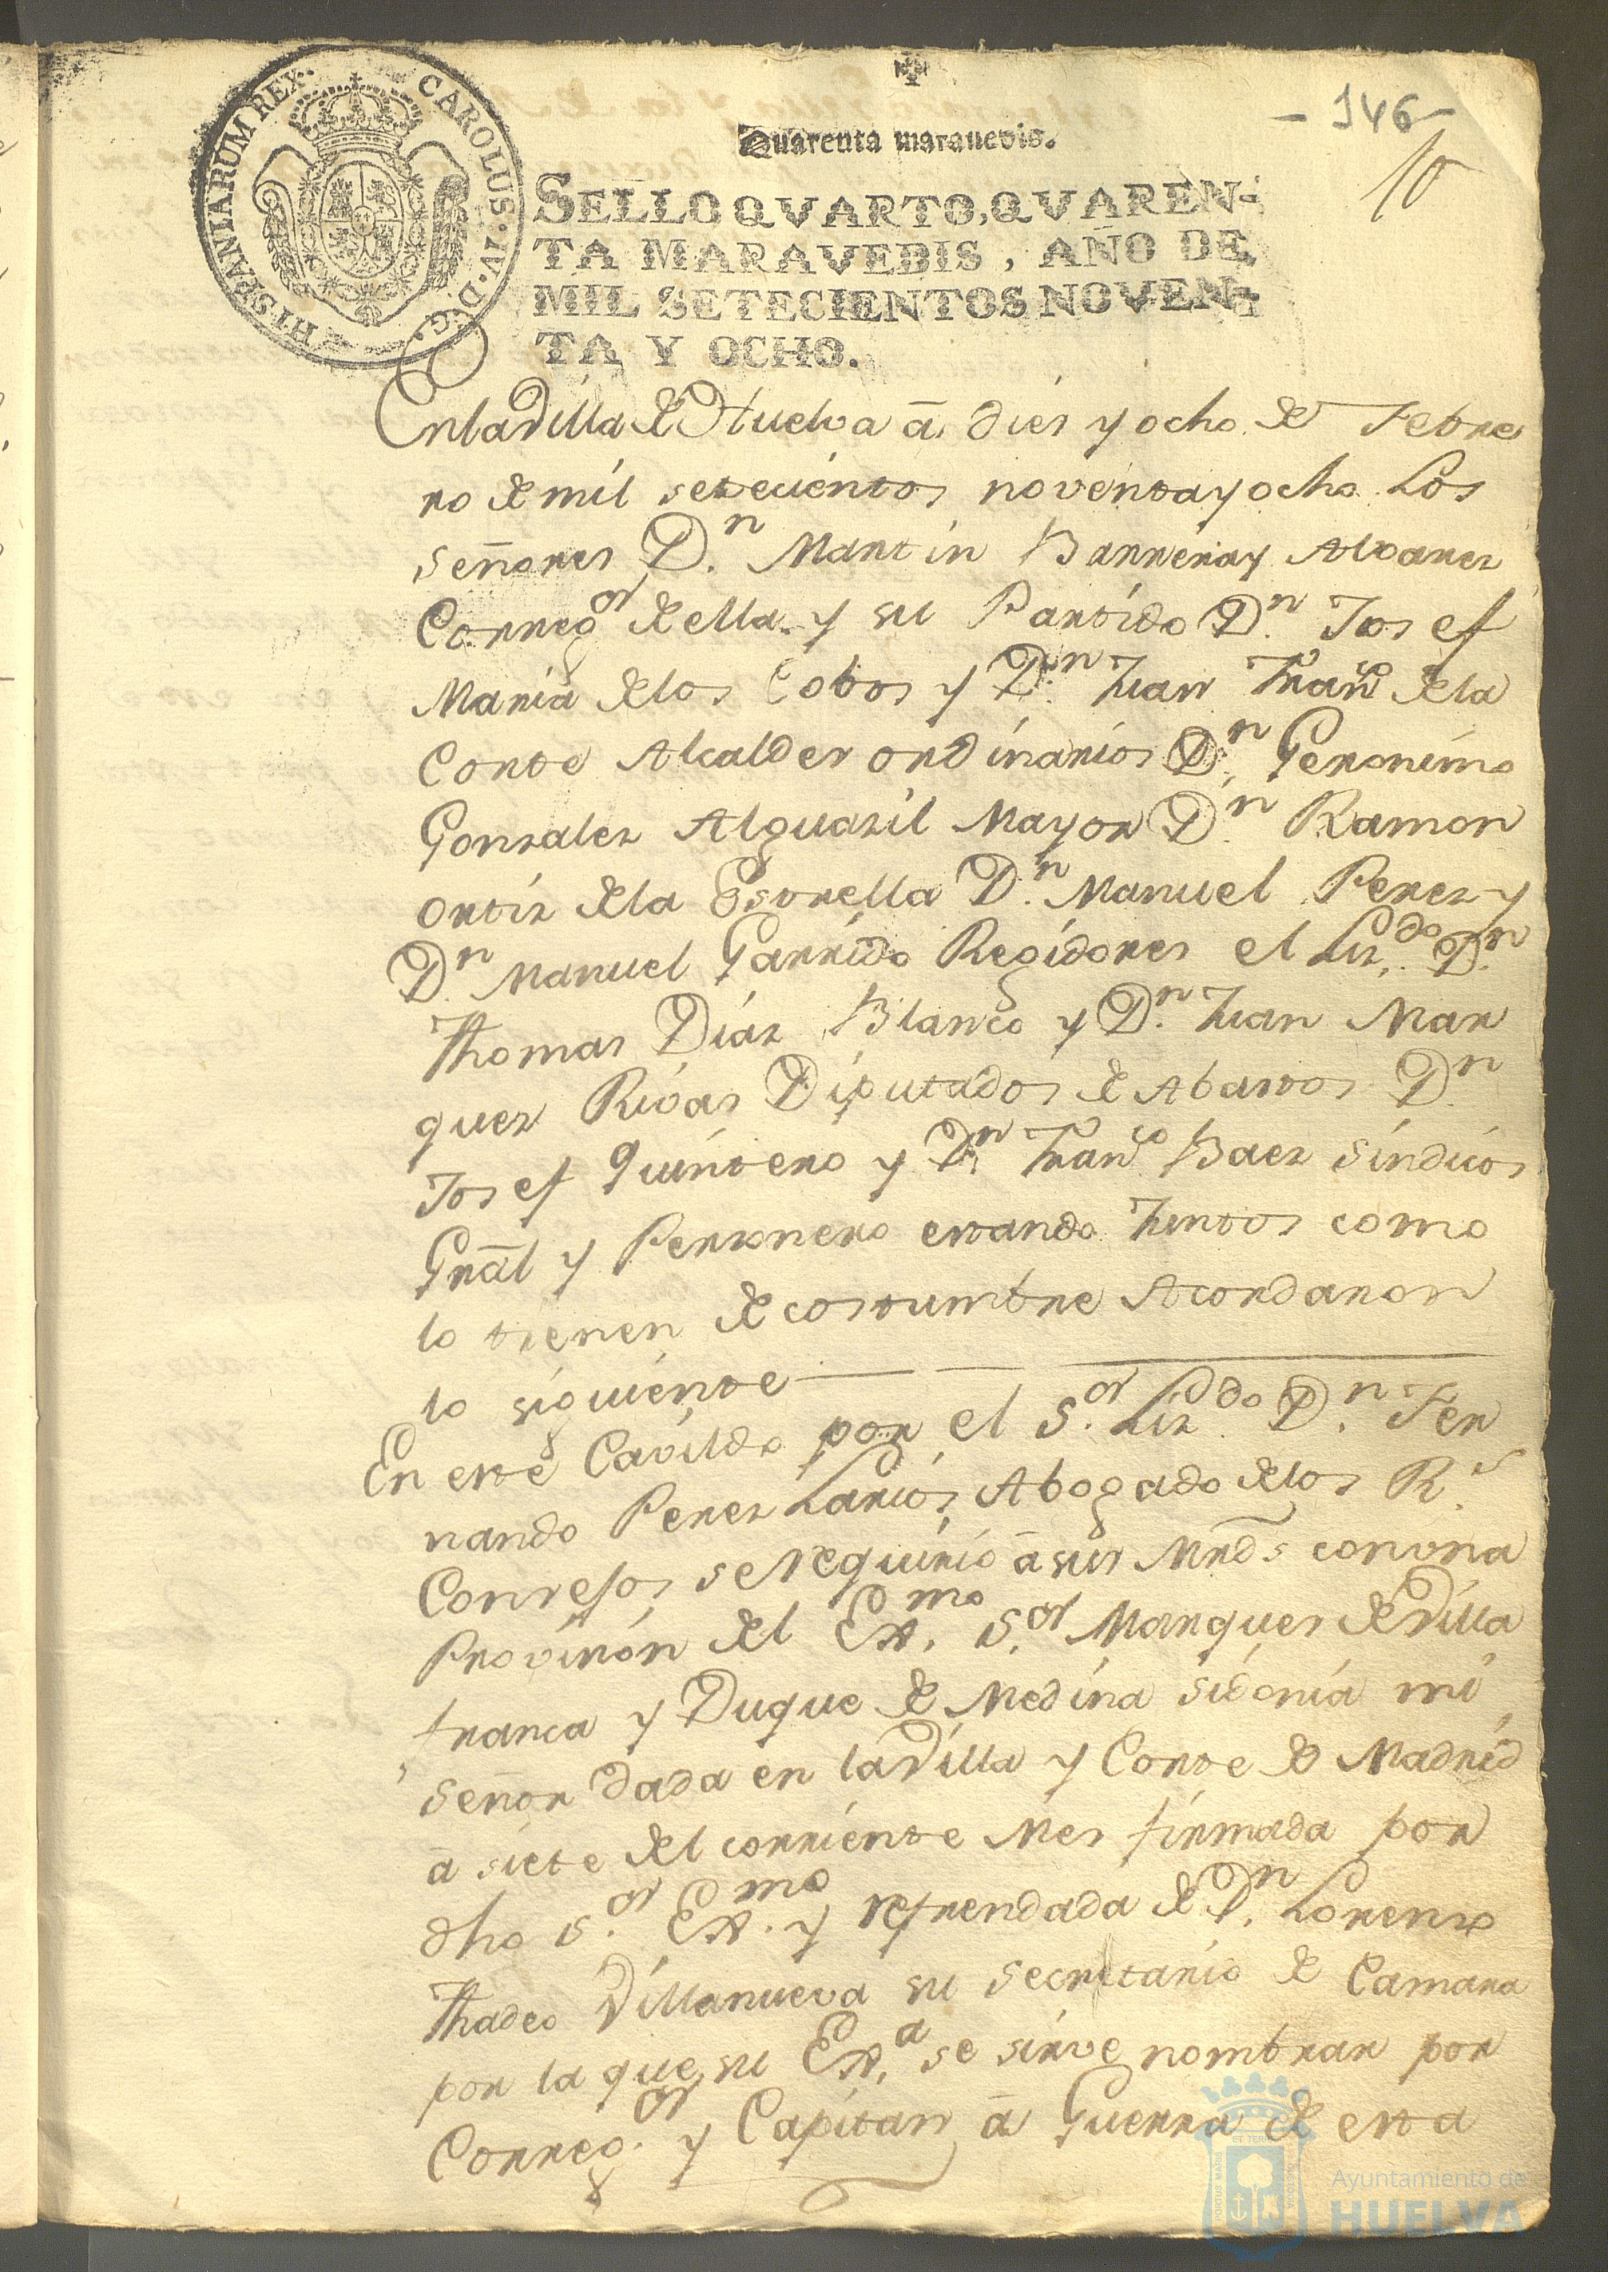 HISPANIARUM REX. CAROLUS. IV. D. G.
- 146 -
10
Quarenta maravedis.
SELLO QVARTO, QVAREN-
TA MARAVEDIS, AÑO DE
MIL SETECIENTOS NOVEN-
TA Y OCHO.
En la Villa de Huelva â dies y ocho de Febre
ro de mil setecientos noventa y ocho Los
señores D.n Martin Barrera y Alvarez
Correg.or de ella y su Partido D.n Josef
Maria de los Cobos y D.n Juan Fran.co de la
Corte Alcaldes ordinarios D.n Geronimo
Gonzalez Alguazil Mayor D.n Ramon
Ortiz de la Estrella D.n Manuel Perez y
D.n Manuel Garrido Regidores el Liz.do D.n
Thomas Diaz Blanco y D.n Juan Mar
quez Rivas Diputados de Abastos D.n
Josef Quintero y D.n Fran.co Baez Sindicos
Gral y Personero estando Juntos como
lo tienen de costumbre Acordaron
lo siguiente
En este Cavildo por el S.or Liz.do D.n Fer
nando Perez Larios, Abogado de los R.s
Consejos, se requirio â sus Mrds con una
Provision del Ex.mo S.or Marques de Villa
franca y Duque de Medina Sidonia mi
Señor dada en la Villa y Corte de Madrid
â siete del corriente Mes firmada por
dho S.or Ex.mo y refrendada de D.n Lorenzo
Thadeo Villanueva su Secretario de Camara
por la que su Ex.a se sirve nombrar por
Correg.or y Capitan â Guerra de esta
Ayuntamiento de
HUELVA